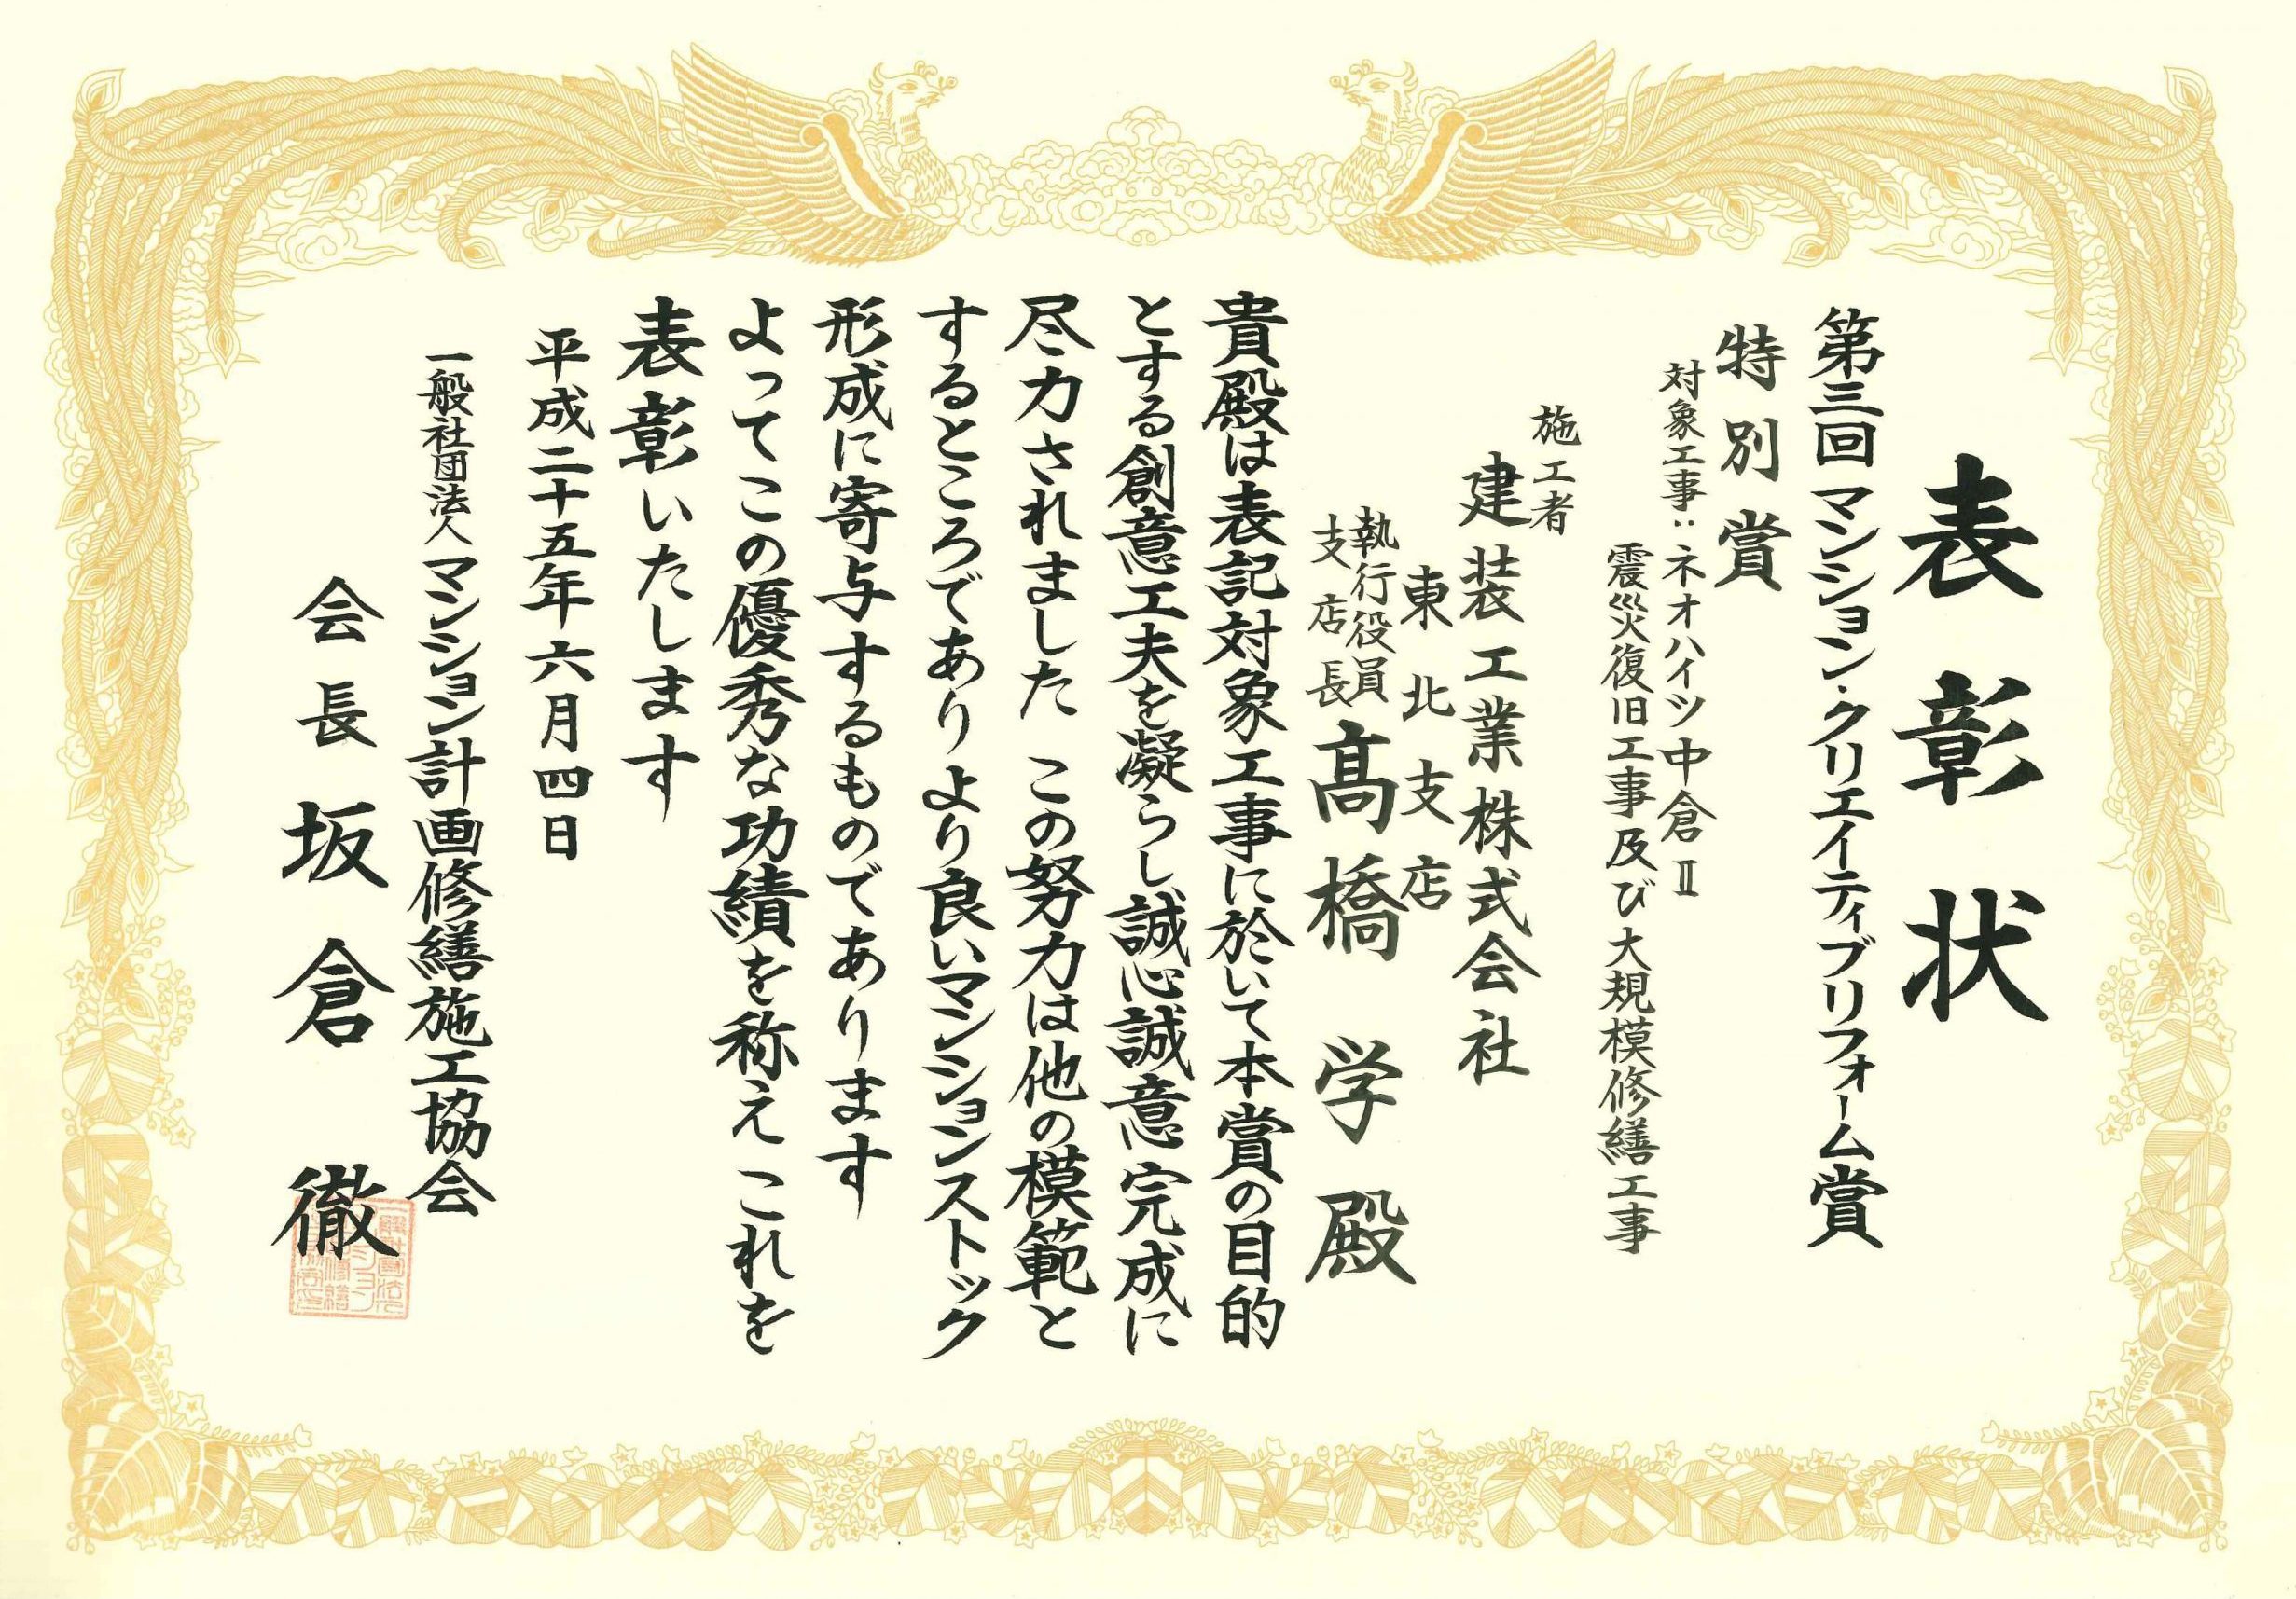 表彰状
第三回マンション・クリエイティブリフォーム賞
特別賞
対象工事：ネオハイツ中倉Ⅱ
震災復旧工事及び大規模修繕工事
施工者
建装工業株式会社
東北支店
執行役員
支店長
髙橋 学 殿
貴殿は表記対象工事に於いて本賞の目的
とする創意工夫を凝らし誠心誠意完成に
尽力されました この努力は他の模範と
するところであり より良いマンションストック
形成に寄与するものであります
よってこの優秀な功績を称え これを
表彰いたします
平成二十五年六月四日
一般社団法人マンション計画修繕施工協会
会長 坂倉 徹